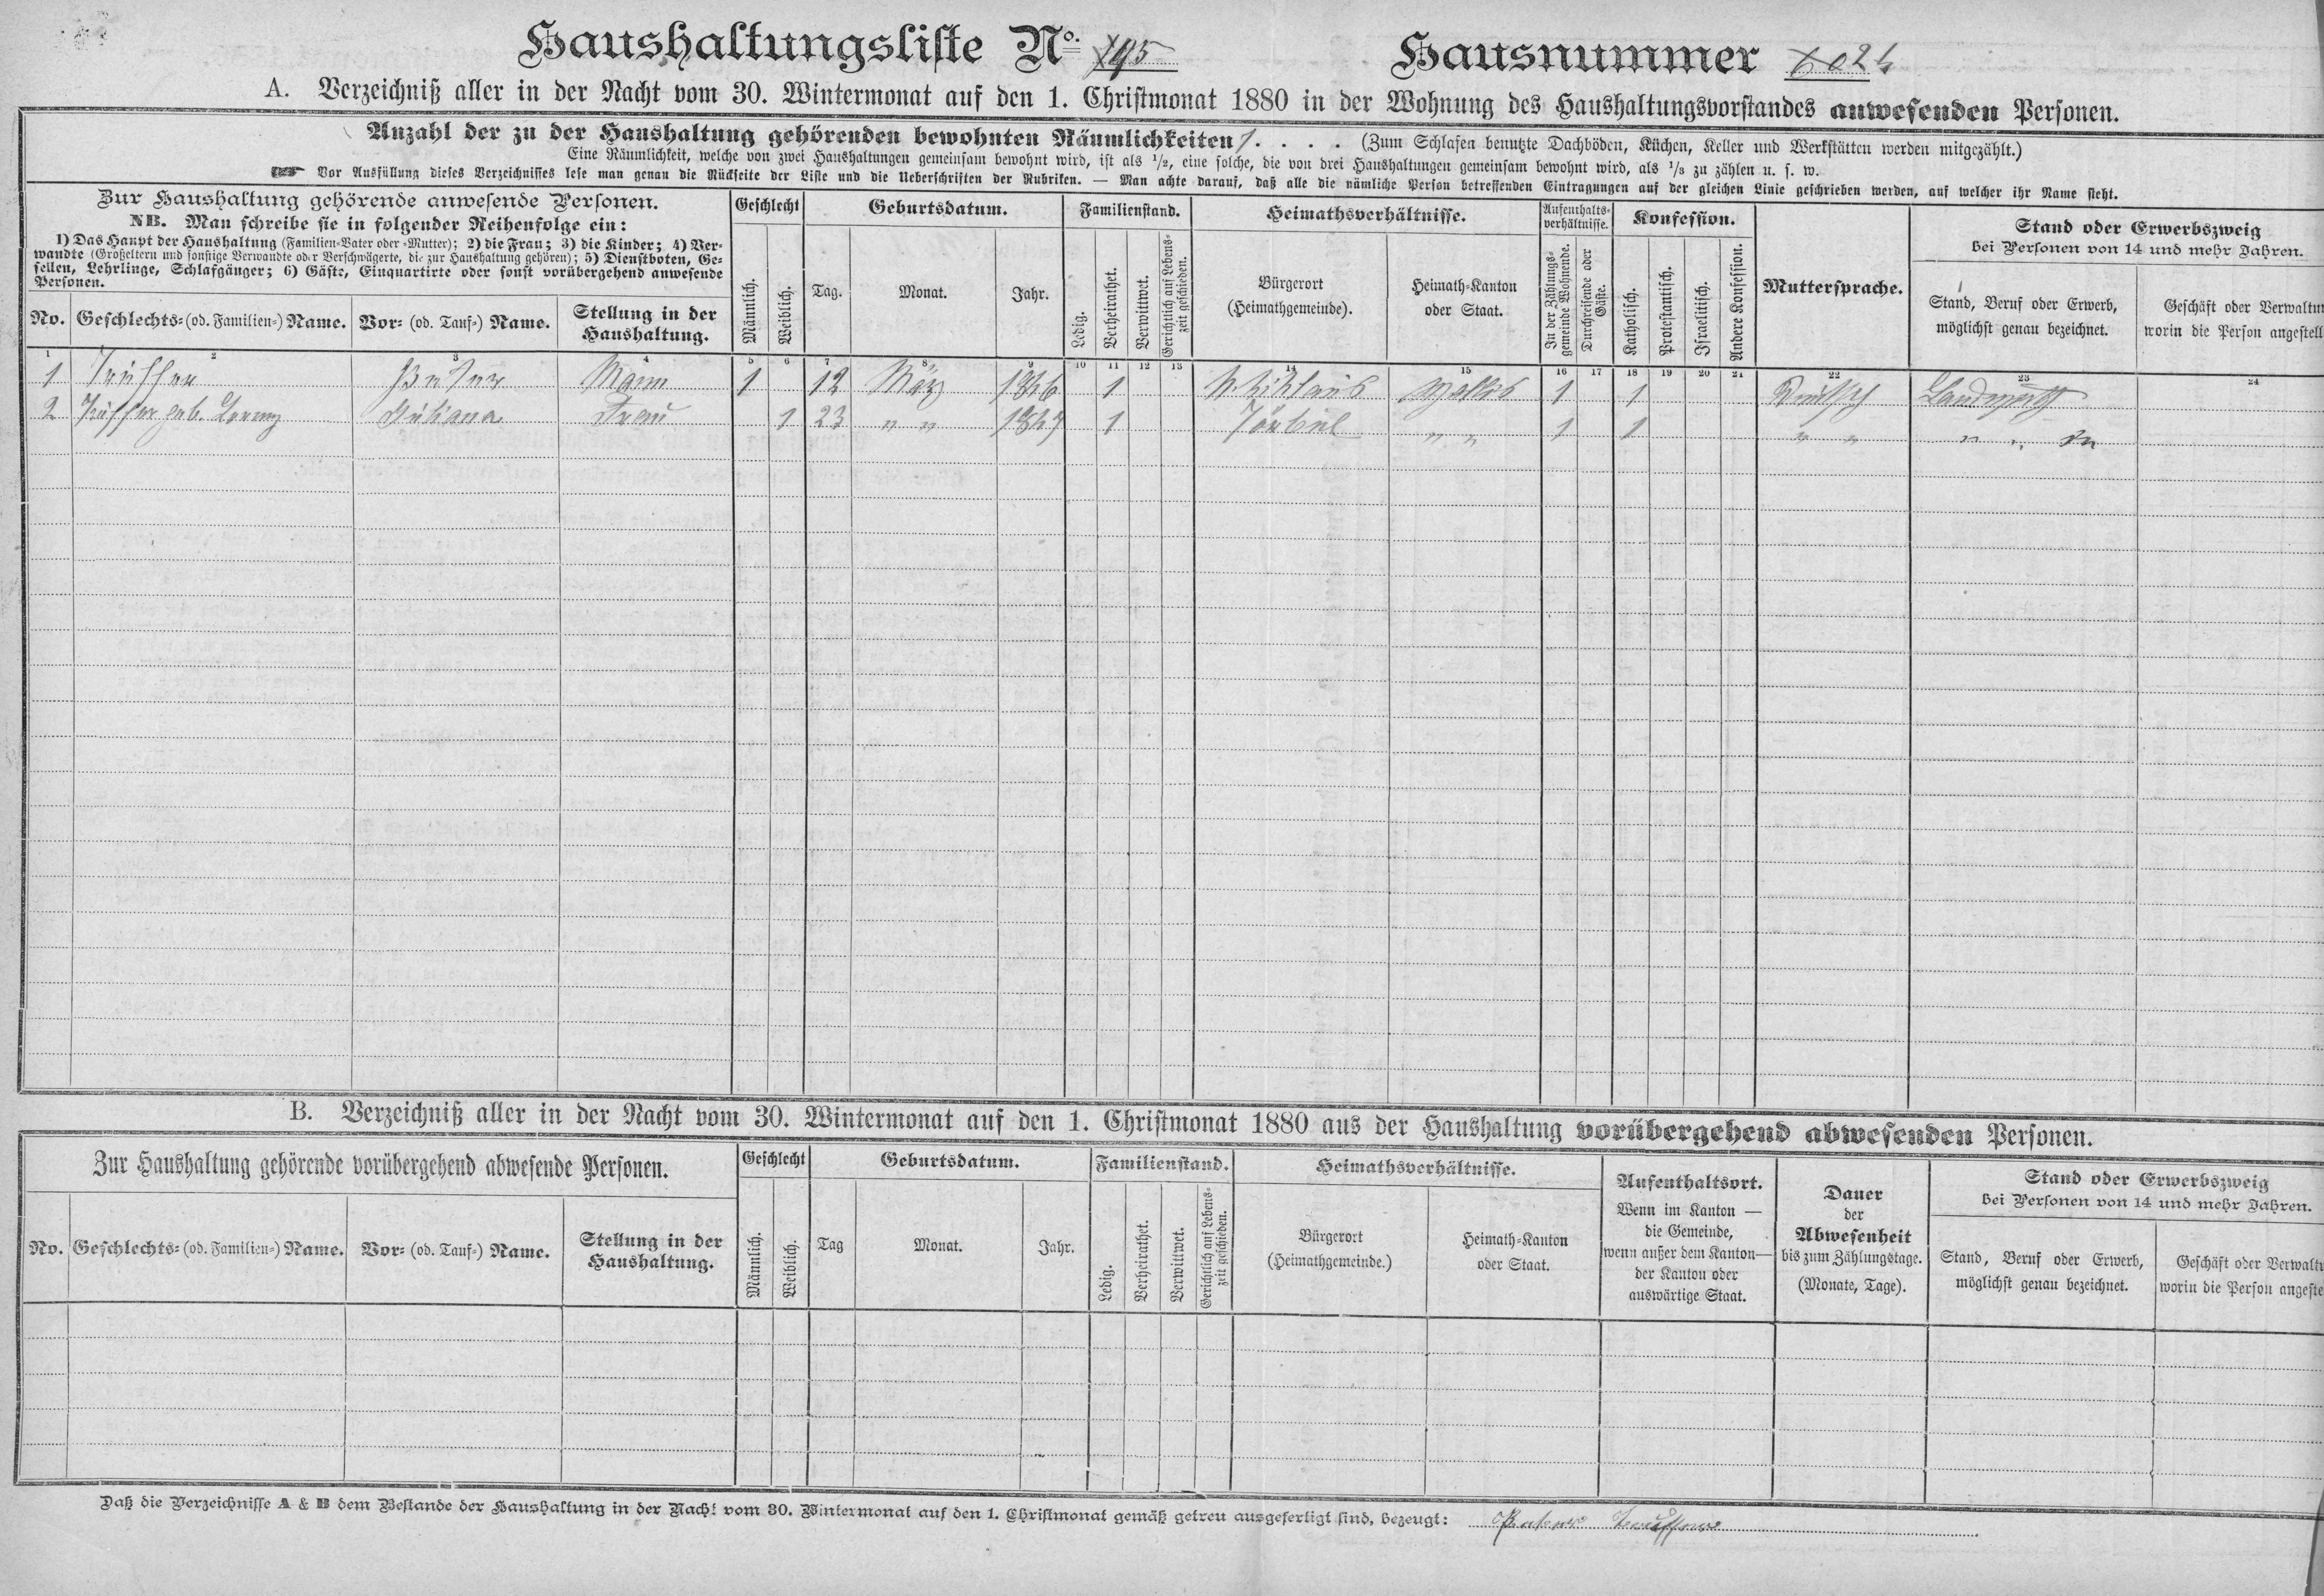 Haushaltungsliste No. 195 Hausnummer
A. Verzeichniß aller in der Nacht vom 30. Wintermonat auf den 1. Christmonat 1880 in der Wohnung des Haushaltungsvorstandes anwesenden Personen.
Anzahl der zu der Haushaltung gehörenden bewohnten Räumlichkeiten 1 . . . . (Zum Schlafen benutzte Dachböden, Küchen, Keller und Werkstätten werden mitgezählt.)
Eine Räumlichkeit, welche von zwei Haushaltungen gemeinsam bewohnt wird, ist als 1/2, eine solche, die von drei Haushaltungen gemeinsam bewohnt wird, als 1/3 zu zählen u. s. w.
Vor Ausfüllung dieses Verzeichnisses lese man genau die Rückseite der Liste und die Ueberschriften der Rubriken. — Man achte darauf, daß alle die nämliche Person betreffenden Eintragungen auf der gleichen Linie geschrieben werden, auf welcher ihr Name steht.
Zur Haushaltung gehörende anwesende Personen.
NB. Man schreibe sie in folgender Reihenfolge ein:
1) Das Haupt der Haushaltung (Familien-Vater oder -Mutter); 2) die Frau; 3) die Kinder; 4) Ver-
wandte (Großeltern und sonstige Verwandte oder Verschwägerte, die zur Haushaltung gehören); 5) Dienstboten, Ge-
sellen, Lehrlinge, Schlafgänger; 6) Gäste, Einquartirte oder sonst vorübergehend anwesende
Personen.
No. Geschlechts- (od. Familien-) Name. Vor- (od. Tauf-) Name. Stellung in der
Haushaltung.
Geschlecht
Männlich. Weiblich.
Geburtsdatum.
Tag. Monat. Jahr.
Familienstand.
Ledig. Verheirathet. Verwittwet. Gerichtlich auf Lebens-
zeit geschieden.
Heimathsverhältnisse.
Bürgerort
(Heimathgemeinde).
Heimath-Kanton
oder Staat.
Aufenthalts-
verhältnisse.
In der Zählungs-
gemeinde Wohnende.
Durchreisende oder
Gäste.
Konfession.
Katholisch. Protestantisch. Israelitisch. Andere Konfession.
Muttersprache.
Stand oder Erwerbszweig
bei Personen von 14 und mehr Jahren.
Stand, Beruf oder Erwerb,
möglichst genau bezeichnet.
Geschäft oder Verwaltun
worin die Person angestell
1 2 3 4 5 6 7 8 9 10 11 12 13 14 15 16 17 18 19 20 21 22 23 24
1 Truffer Peter Mann 1 12 März 1 Wallis 1 1 Deutsch
2 Truffer geb. Lorenz Juliana Frau 1 23 " " 1 Törbel " " 1 1 " " " "
B. Verzeichniß aller in der Nacht vom 30. Wintermonat auf den 1. Christmonat 1880 aus der Haushaltung vorübergehend abwesenden Personen.
Zur Haushaltung gehörende vorübergehend abwesende Personen.
No. Geschlechts- (od. Familien-) Name. Vor- (od. Tauf-) Name. Stellung in der
Haushaltung.
Geschlecht
Männlich. Weiblich.
Geburtsdatum.
Tag Monat. Jahr.
Familienstand.
Ledig. Verheirathet. Verwittwet. Gerichtlich auf Lebens-
zeit geschieden.
Heimathsverhältnisse.
Bürgerort
(Heimathgemeinde.)
Heimath-Kanton
oder Staat.
Aufenthaltsort.
Wenn im Kanton —
die Gemeinde,
wenn außer dem Kanton—
der Kanton oder
auswärtige Staat.
Dauer
der
Abwesenheit
bis zum Zählungstage.
(Monate, Tage).
Stand oder Erwerbszweig
bei Personen von 14 und mehr Jahren.
Stand, Beruf oder Erwerb,
möglichst genau bezeichnet.
Geschäft oder Verwaltu
worin die Person angeste
Daß die Verzeichnisse A & B dem Bestande der Haushaltung in der Nacht vom 30. Wintermonat auf den 1. Christmonat gemäß getreu ausgefertigt sind, bezeugt: Peter Truffer